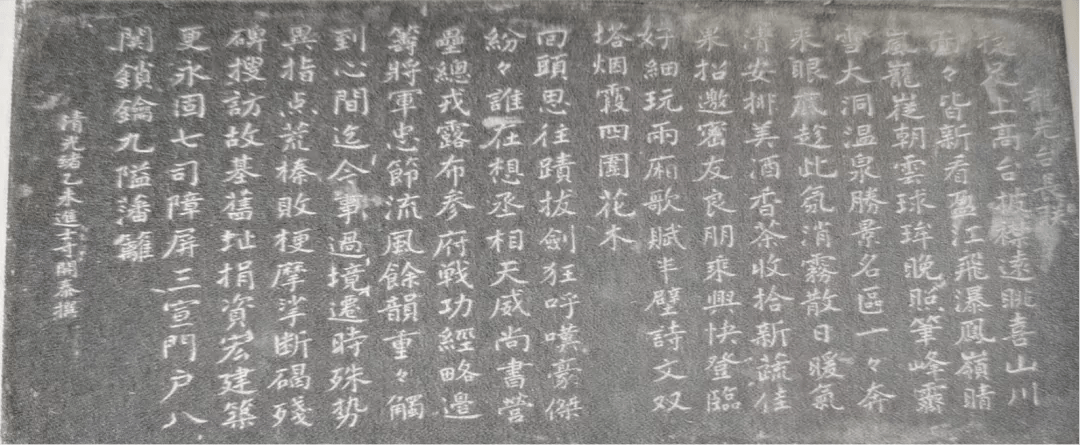 龍光台長联
足上高台披襟遠眺喜山川
面々皆新看盈江飛瀑鳳嶺晴
嵐龍崖朝雲球琫晚照筆峰霽
雪大洞温泉勝景名區一々奔
来眼底趁此氛消霧散日暖氣
清安排美酒香茶收拾新蔬佳
果招邀密友良朋乘興快登臨
好細玩兩廂歌賦半壁詩文双
塔烟霞四圍花木
回頭思往蹟拔劍狂呼嘆豪傑
紛々誰在想丞相天威尚書營
壘總戎露布参府戰功經略邊
籌將軍忠節流風餘韻重々觸
到心間迄今事過境遷時殊勢
異指点荒榛敗梗摩挲断碣殘
碑搜訪故基舊址捐資宏建築
更永固七司障屏三宣門户八
関鎖鑰九隘潘籬
清光緒乙未進士寸開泰撰